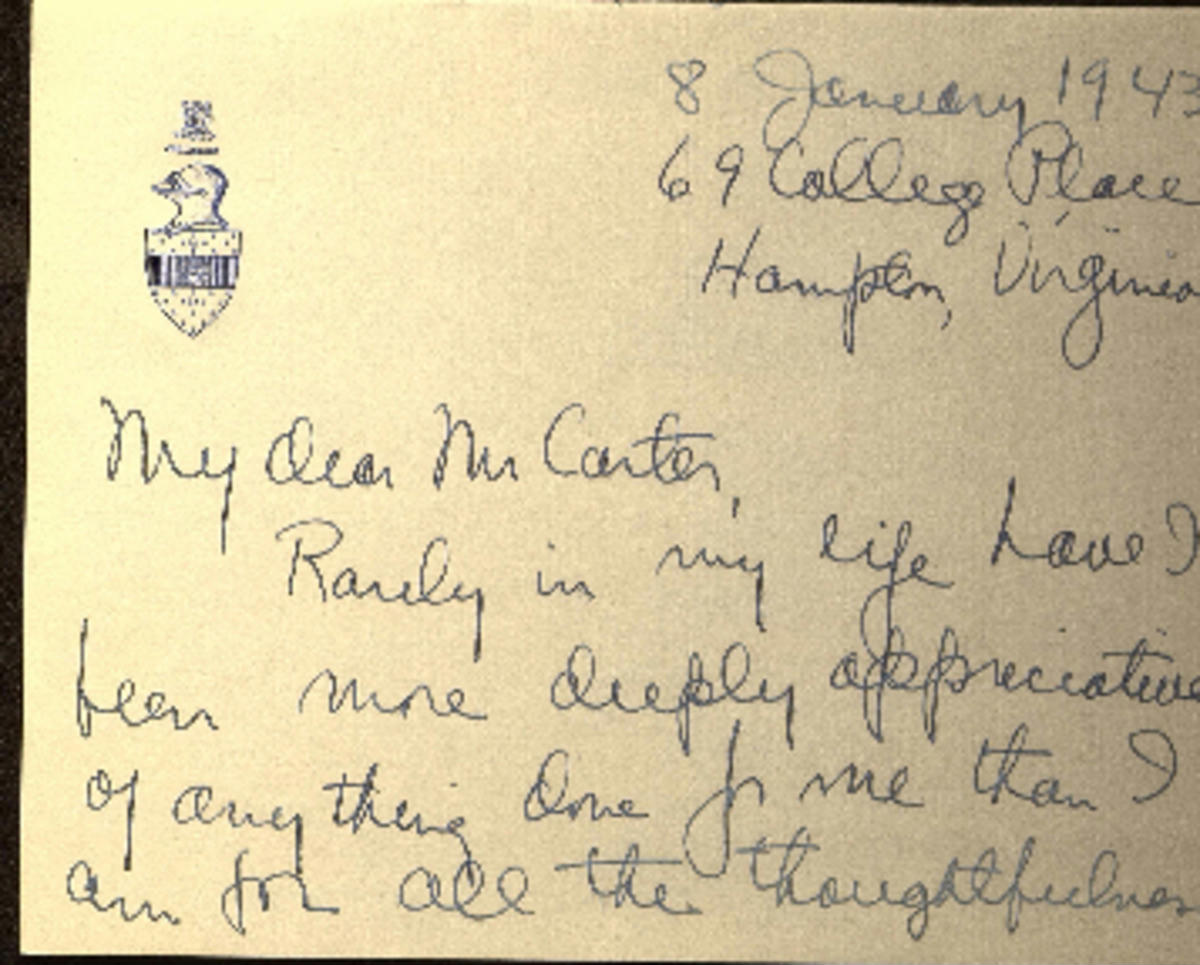 8 January 1943
69 College Place
Hampton, Virginia
My dear Mr Carter,
Rarely in my life have I
been more deeply appreciative
of anything done for me than I
am for all the thoughtfulness